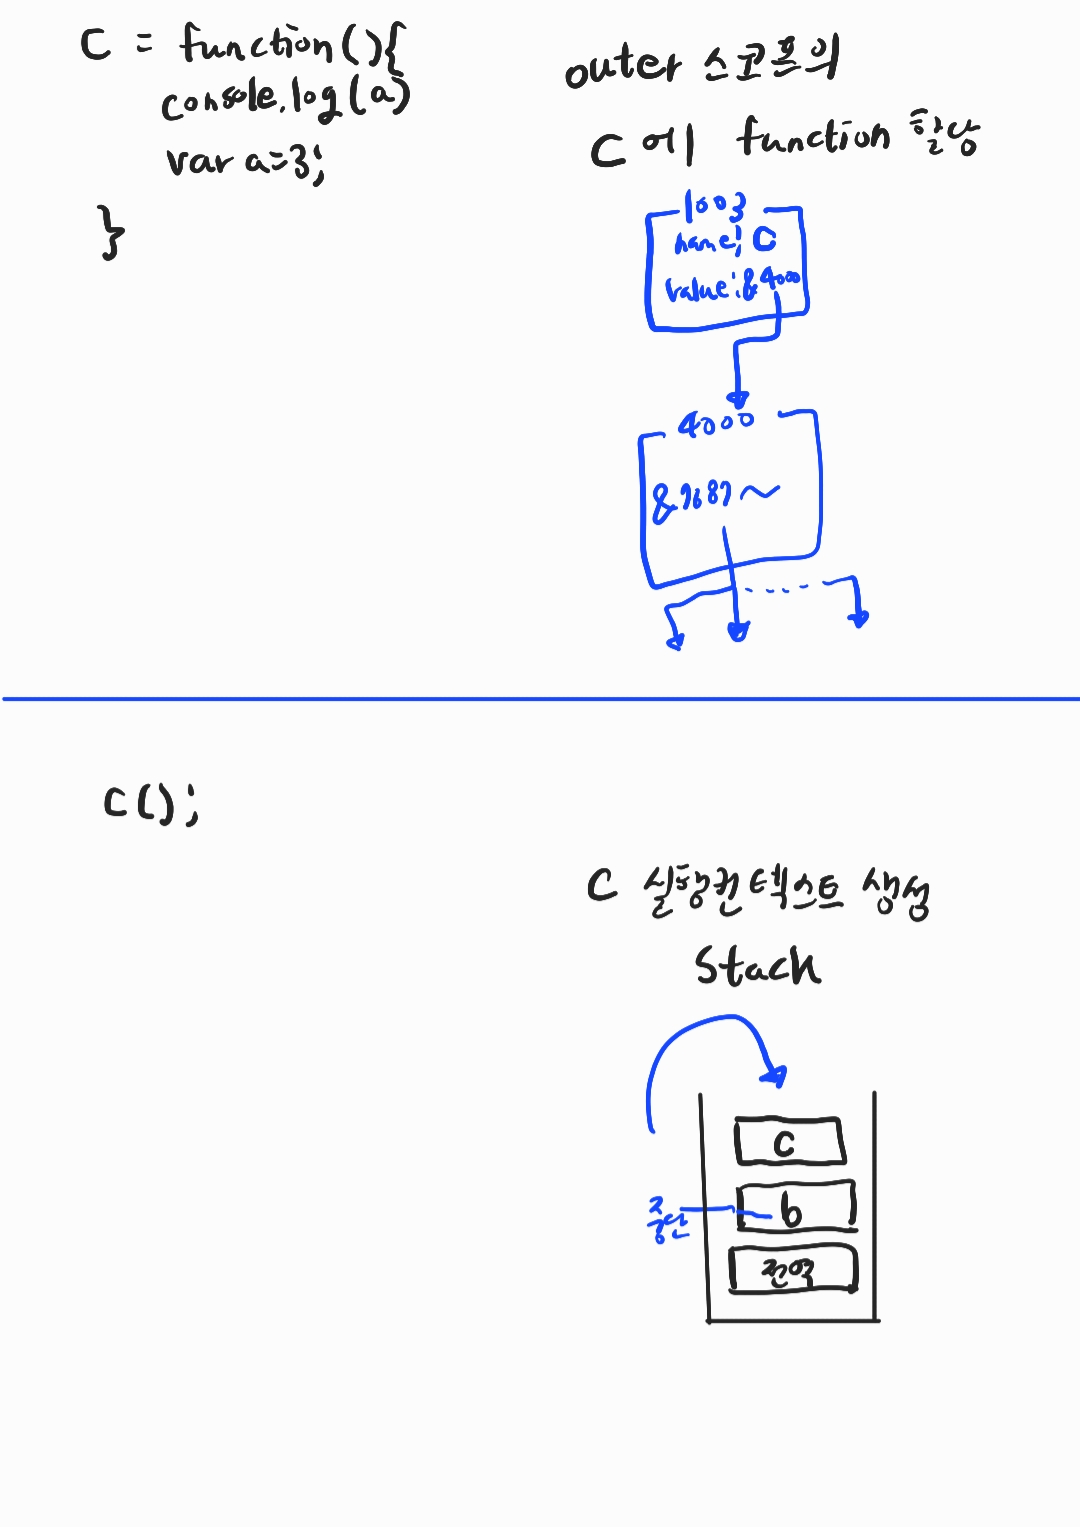 C = function(){
console.log(a)
var a=3;
}
outer 스코프의
C 에 function 할당
1003
name: C
value: &4000
4000
&7687~
C();
C 실행컨텍스트 생성
Stack
C
중단
b
전역